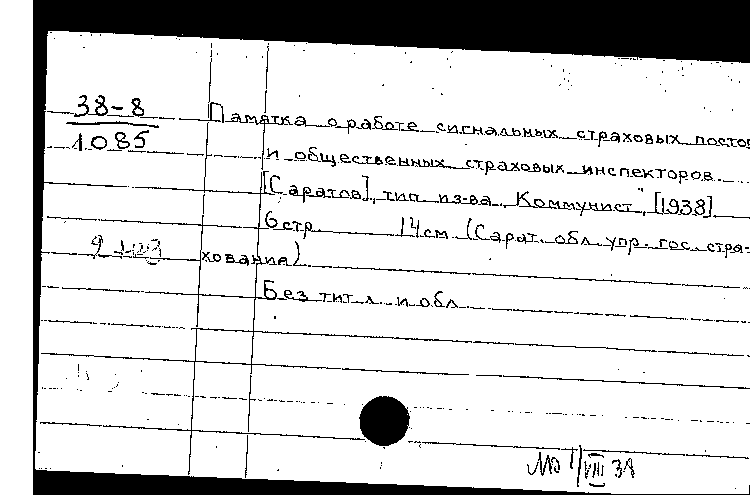 38-8
1085
Памятка о работе сигнальных страховых постов
и общественных страховых инспекторов.
[Саратов], тип. из-ва „Коммунист", [1938].
6 стр. 14 см. (Сарат. обл. упр. гос. стра-
хования).
Без тит. л. и обл.